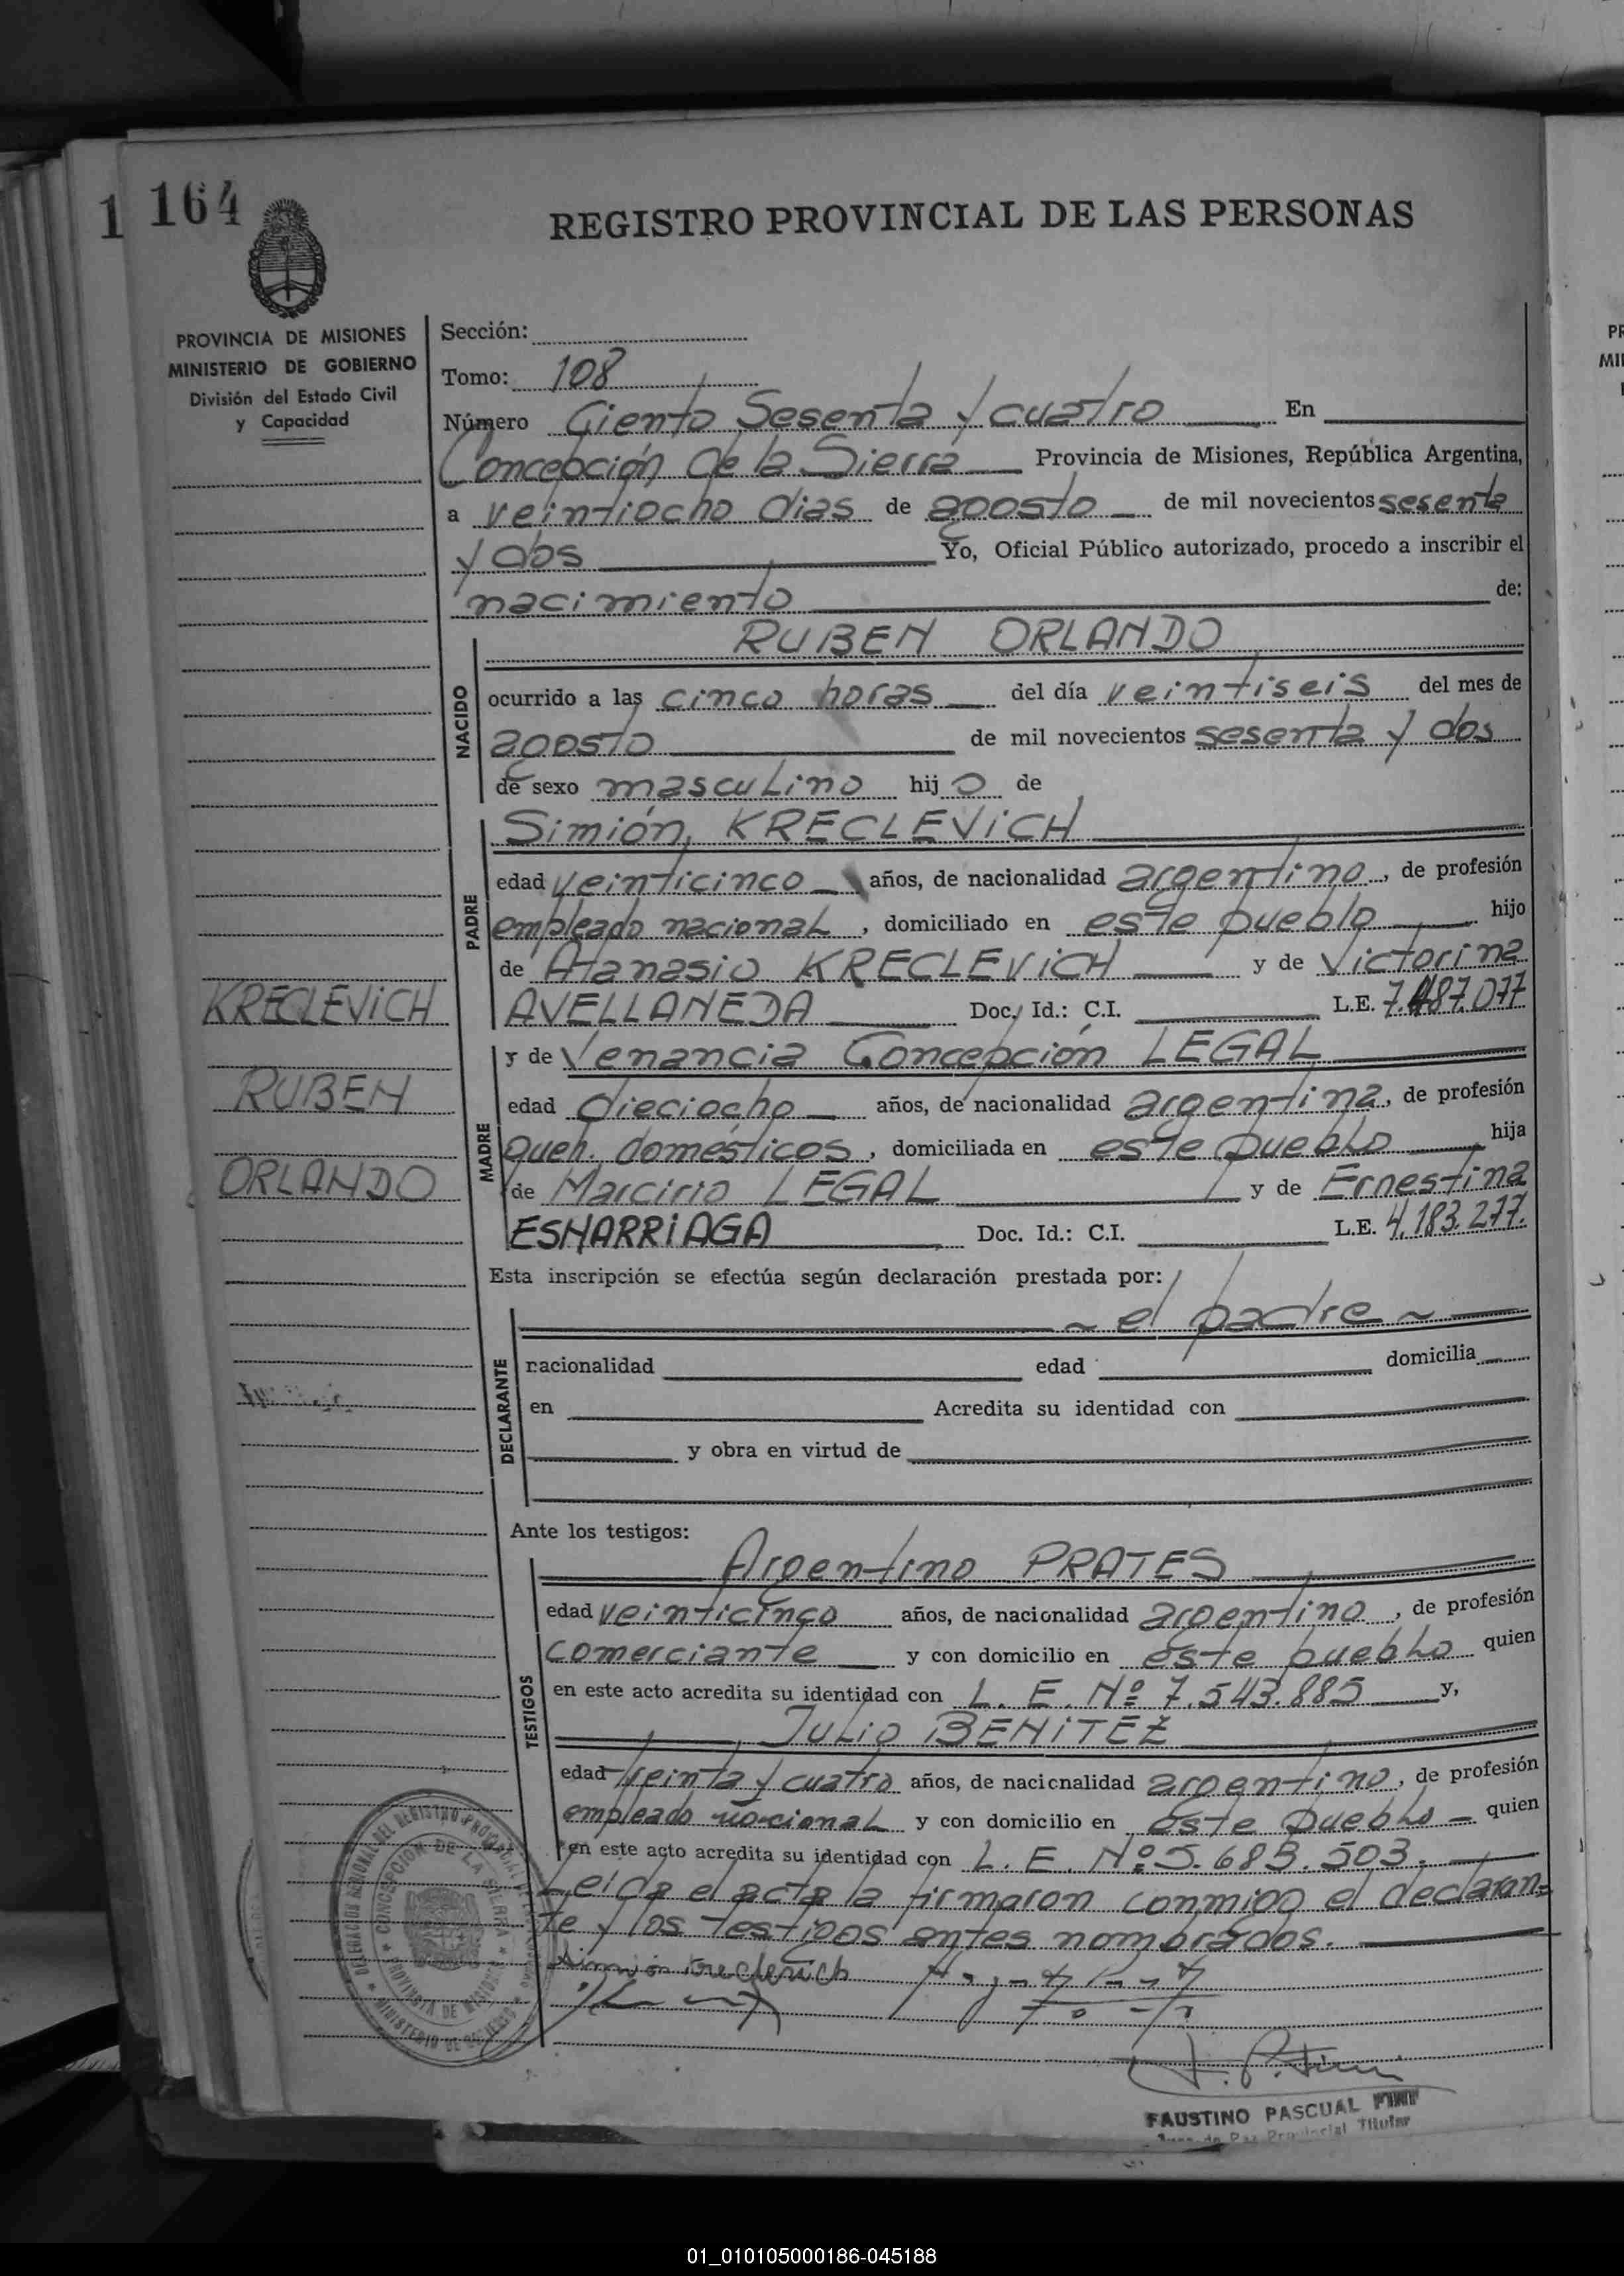 1 164
REGISTRO PROVINCIAL DE LAS PERSONAS
PROVINCIA DE MISIONES
MINISTERIO DE GOBIERNO
División del Estado Civil
y Capacidad
Sección:
Tomo: 108
Número Ciento Sesenta y cuatro En
Concepción de la Sierra Provincia de Misiones, República Argentina,
a veintiocho dias de agosto de mil novecientos sesenta
y dos Yo, Oficial Público autorizado, procedo a inscribir el
nacimiento de:
NACIDO
RUBEN ORLANDO
ocurrido a las cinco horas del día veintiseis del mes de
agosto de mil novecientos sesenta y dos
de sexo masculino hijo de
PADRE
Simión, KRECLEVICH
edad veinticinco años, de nacionalidad argentino, de profesión
empleado nacional, domiciliado en este pueblo hijo
de Atanasio KRECLEVICH y de Victorina
AVELLANEDA Doc. Id.: C.I. L.E. 7.487.077
KRECLEVICH
RUBEN
ORLANDO
MADRE
y de Venancia Concepción LEGAL
edad dieciocho años, de nacionalidad argentina, de profesión
queh. domésticos, domiciliada en este pueblo hija
de Marcirio LEGAL y de Ernestina
ESNARRIAGA Doc. Id.: C.I. L.E. 4.183.277.
Esta inscripción se efectúa según declaración prestada por:
DECLARANTE
~ el padre ~
nacionalidad edad domicilia
en Acredita su identidad con
y obra en virtud de
Ante los testigos:
TESTIGOS
Argentino PRATES
edad veinticinco años, de nacionalidad argentino, de profesión
comerciante y con domicilio en este pueblo quien
en este acto acredita su identidad con L. E. Nº 7.543.885 y,
JULIO BENITEZ
edad treinta y cuatro años, de nacionalidad argentino, de profesión
empleado nacional y con domicilio en este pueblo quien
en este acto acredita su identidad con L. E. Nº 5.683.503.
Leida el acta la firmaron conmigo el declaran-
te y los testigos antes nombrados.
Simión Kreclevich
DELEGACION REGIONAL DEL REGISTRO PROVINCIAL DE LAS PERSONAS
CONCEPCION DE LA SIERRA
PROVINCIA DE MISIONES
MINISTERIO DE GOBIERNO
FAUSTINO PASCUAL
Juez de Paz Provincial Titular
01_010105000186-045188